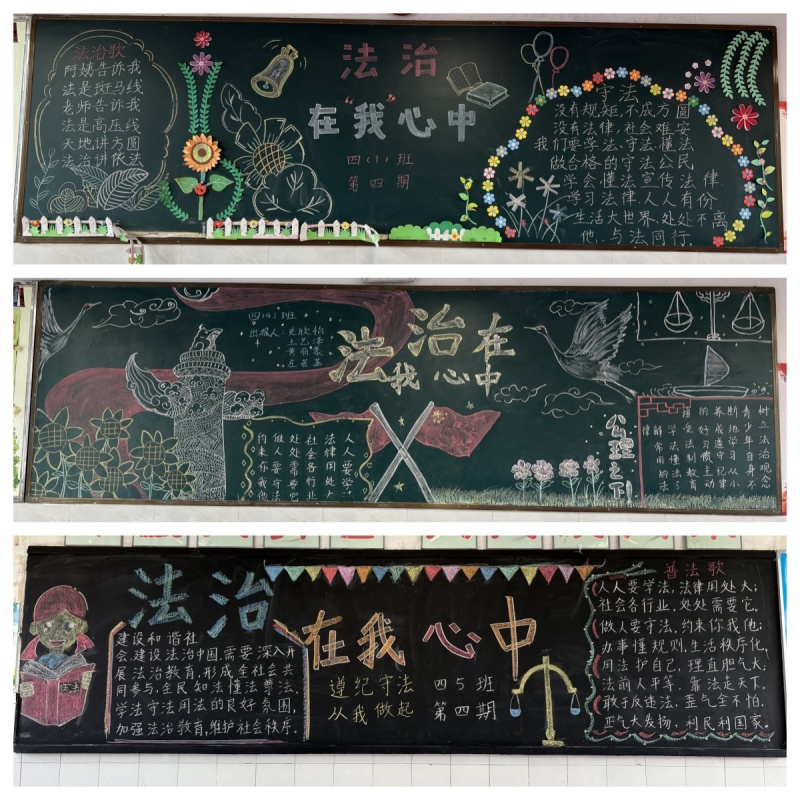 法治歌
阿姨告诉我
法是斑马线
老师告诉我
法是高压线
天地讲方圆
法治讲依法
法治
在“我”心中
四(1)班
第四期
守法
没有规矩,不成方圆
没有法律,社会难安
我们要学法、守法、懂法
做合格的守法公民
学会懂法宣传法律
学习法律,人人有份
生活大世界,处处不离
他,与法同行.
四(4)班
出报人:
法治在
我心中
人人要学法
法律用处大
社会各行业
处处需要它
做人要守法
约来你我他
公理之下
树立法治观念
青少年自身不
断地学习从小
养成遵守纪律
的好习惯主动
接受法制教育
学法懂法了
解常用的法
律
法治
在我心中
建设和谐社
会,建设法治中国,需要深入开
展法治教育,形成全社会共
同参与,全民知法懂法尊法,
学法守法用法的良好氛围,
加强法治教育,维护社会秩序.
遵纪守法
从我做起
四5班
第四期
普法歌
人人要学法,法律用处大;
社会各行业,处处需要它.
做人要守法,约束你我他;
办事懂规则,生活秩序化.
用法护自己,理直胆气大,
法前人平等,靠法走天下.
敢于反违法,歪气全不怕.
正气大发扬,利民利国家.